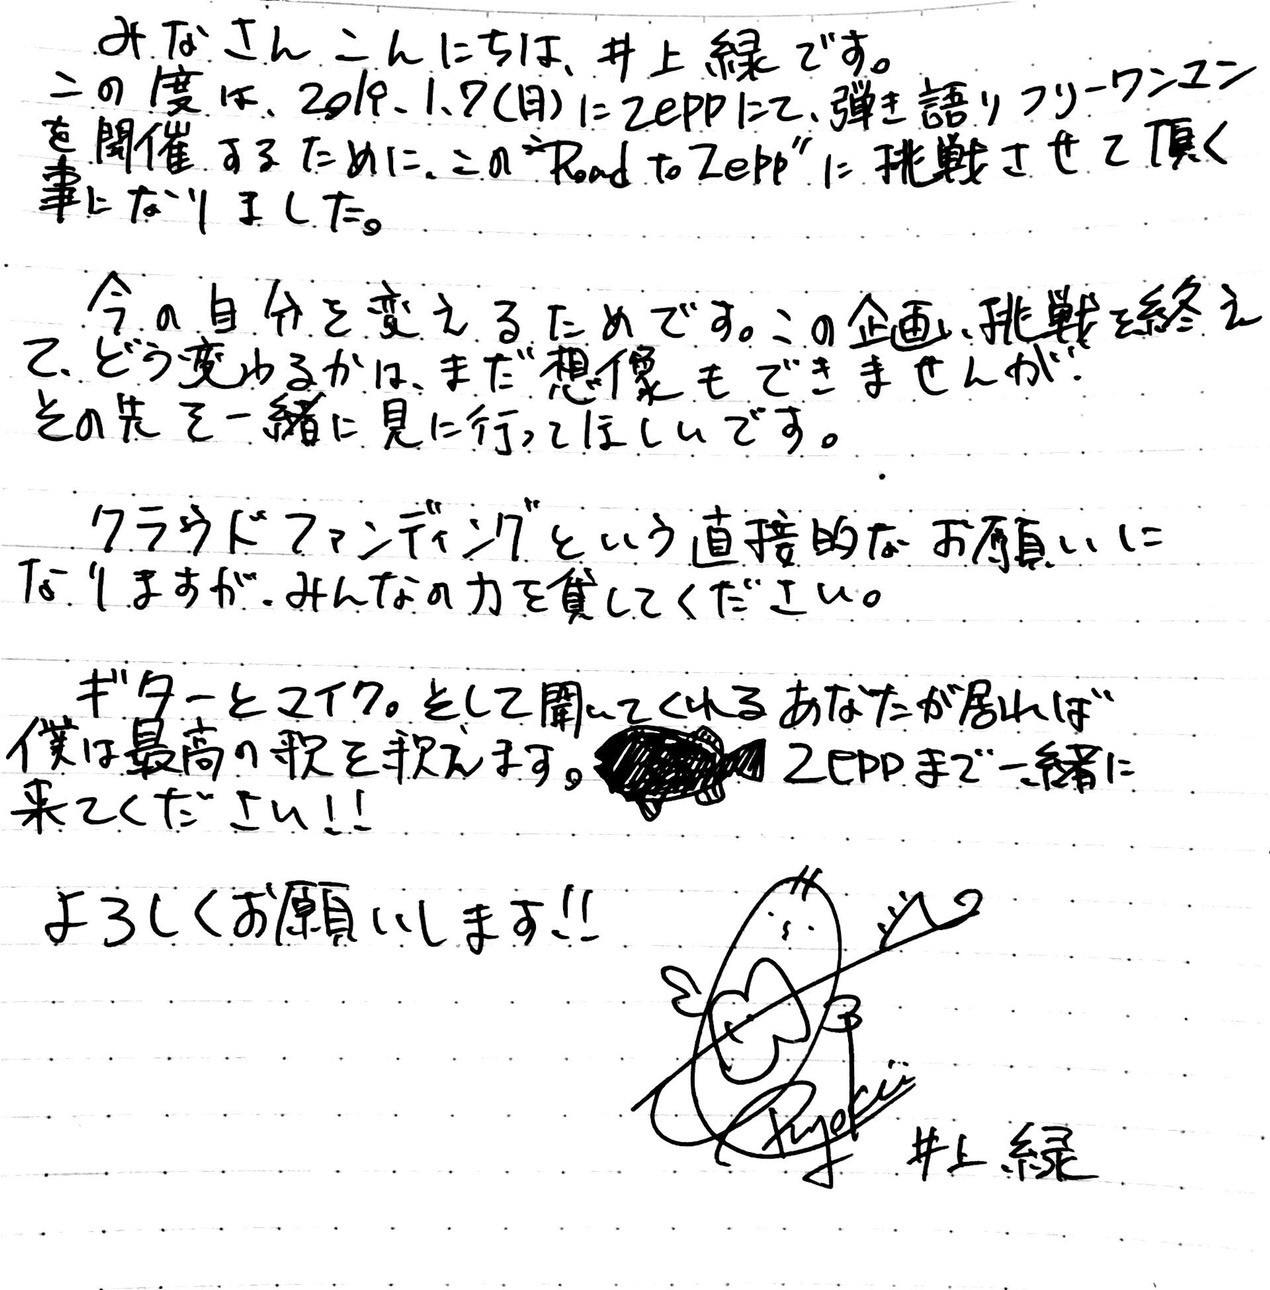 みなさんこんにちは、井上緑です。
この度は、2019.1.7(日)にzeppにて、弾き語りフリーワンマン
を開催するために、この"Road to Zepp"に挑戦させて頂く
事になりました。
今の自分を変えるためです。この企画、挑戦を終え
て、どう変わるかは、まだ想像もできませんが、
その先を一緒に見に行ってほしいです。
クラウドファンディングという直接的なお願いに
なりますが、みんなの力を貸してください。
ギターとマイク。そして聞いてくれるあなたが居れば
僕は最高の歌を歌えます。Zeppまで一緒に
来てください!!
よろしくお願いします!!
井上緑